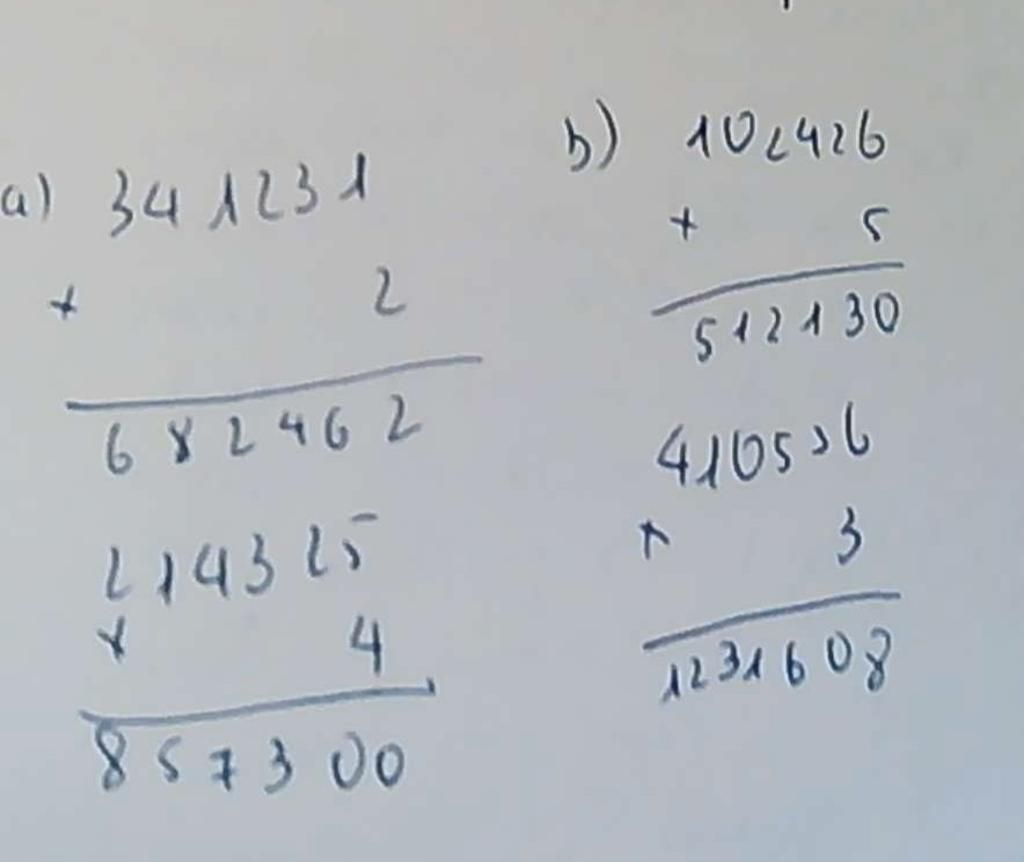 a) 341231
x 2
682462
214325
x 4
857300
b) 102426
x 5
512130
410536
x 3
1231608